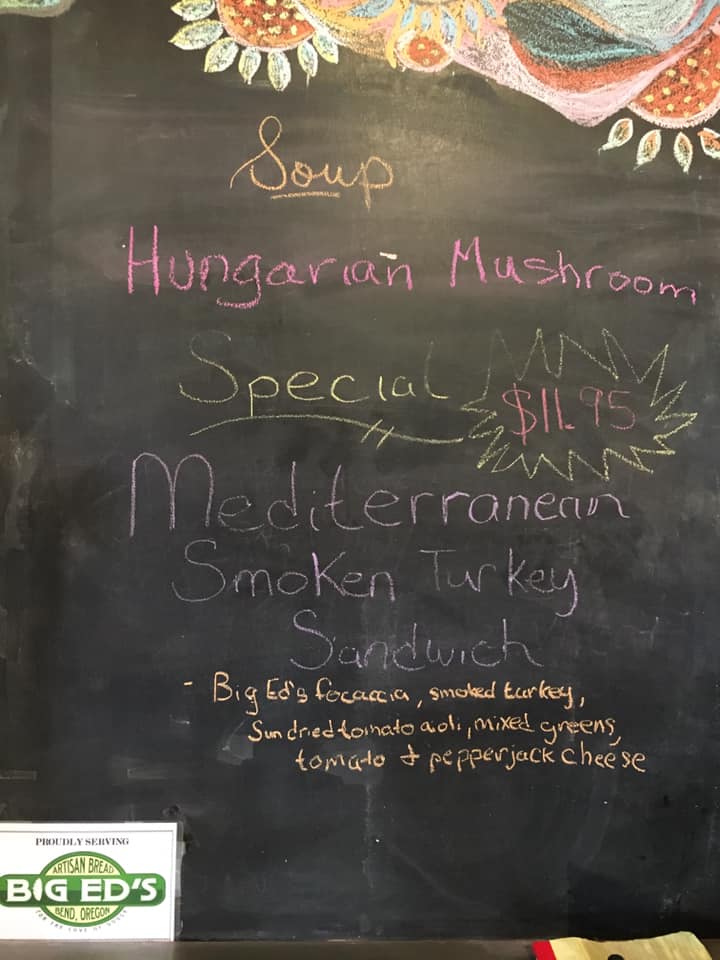 Soup
Hungarian Mushroom
Special $11.95
Mediterranean
Smoken Turkey
Sandwich
- Big Ed's focaccia, smoked turkey,
Sundried tomato aoli, mixed greens,
tomato & pepperjack cheese
PROUDLY SERVING
ARTISAN BREAD
BIG ED'S
BEND, OREGON
FOR THE LOVE OF